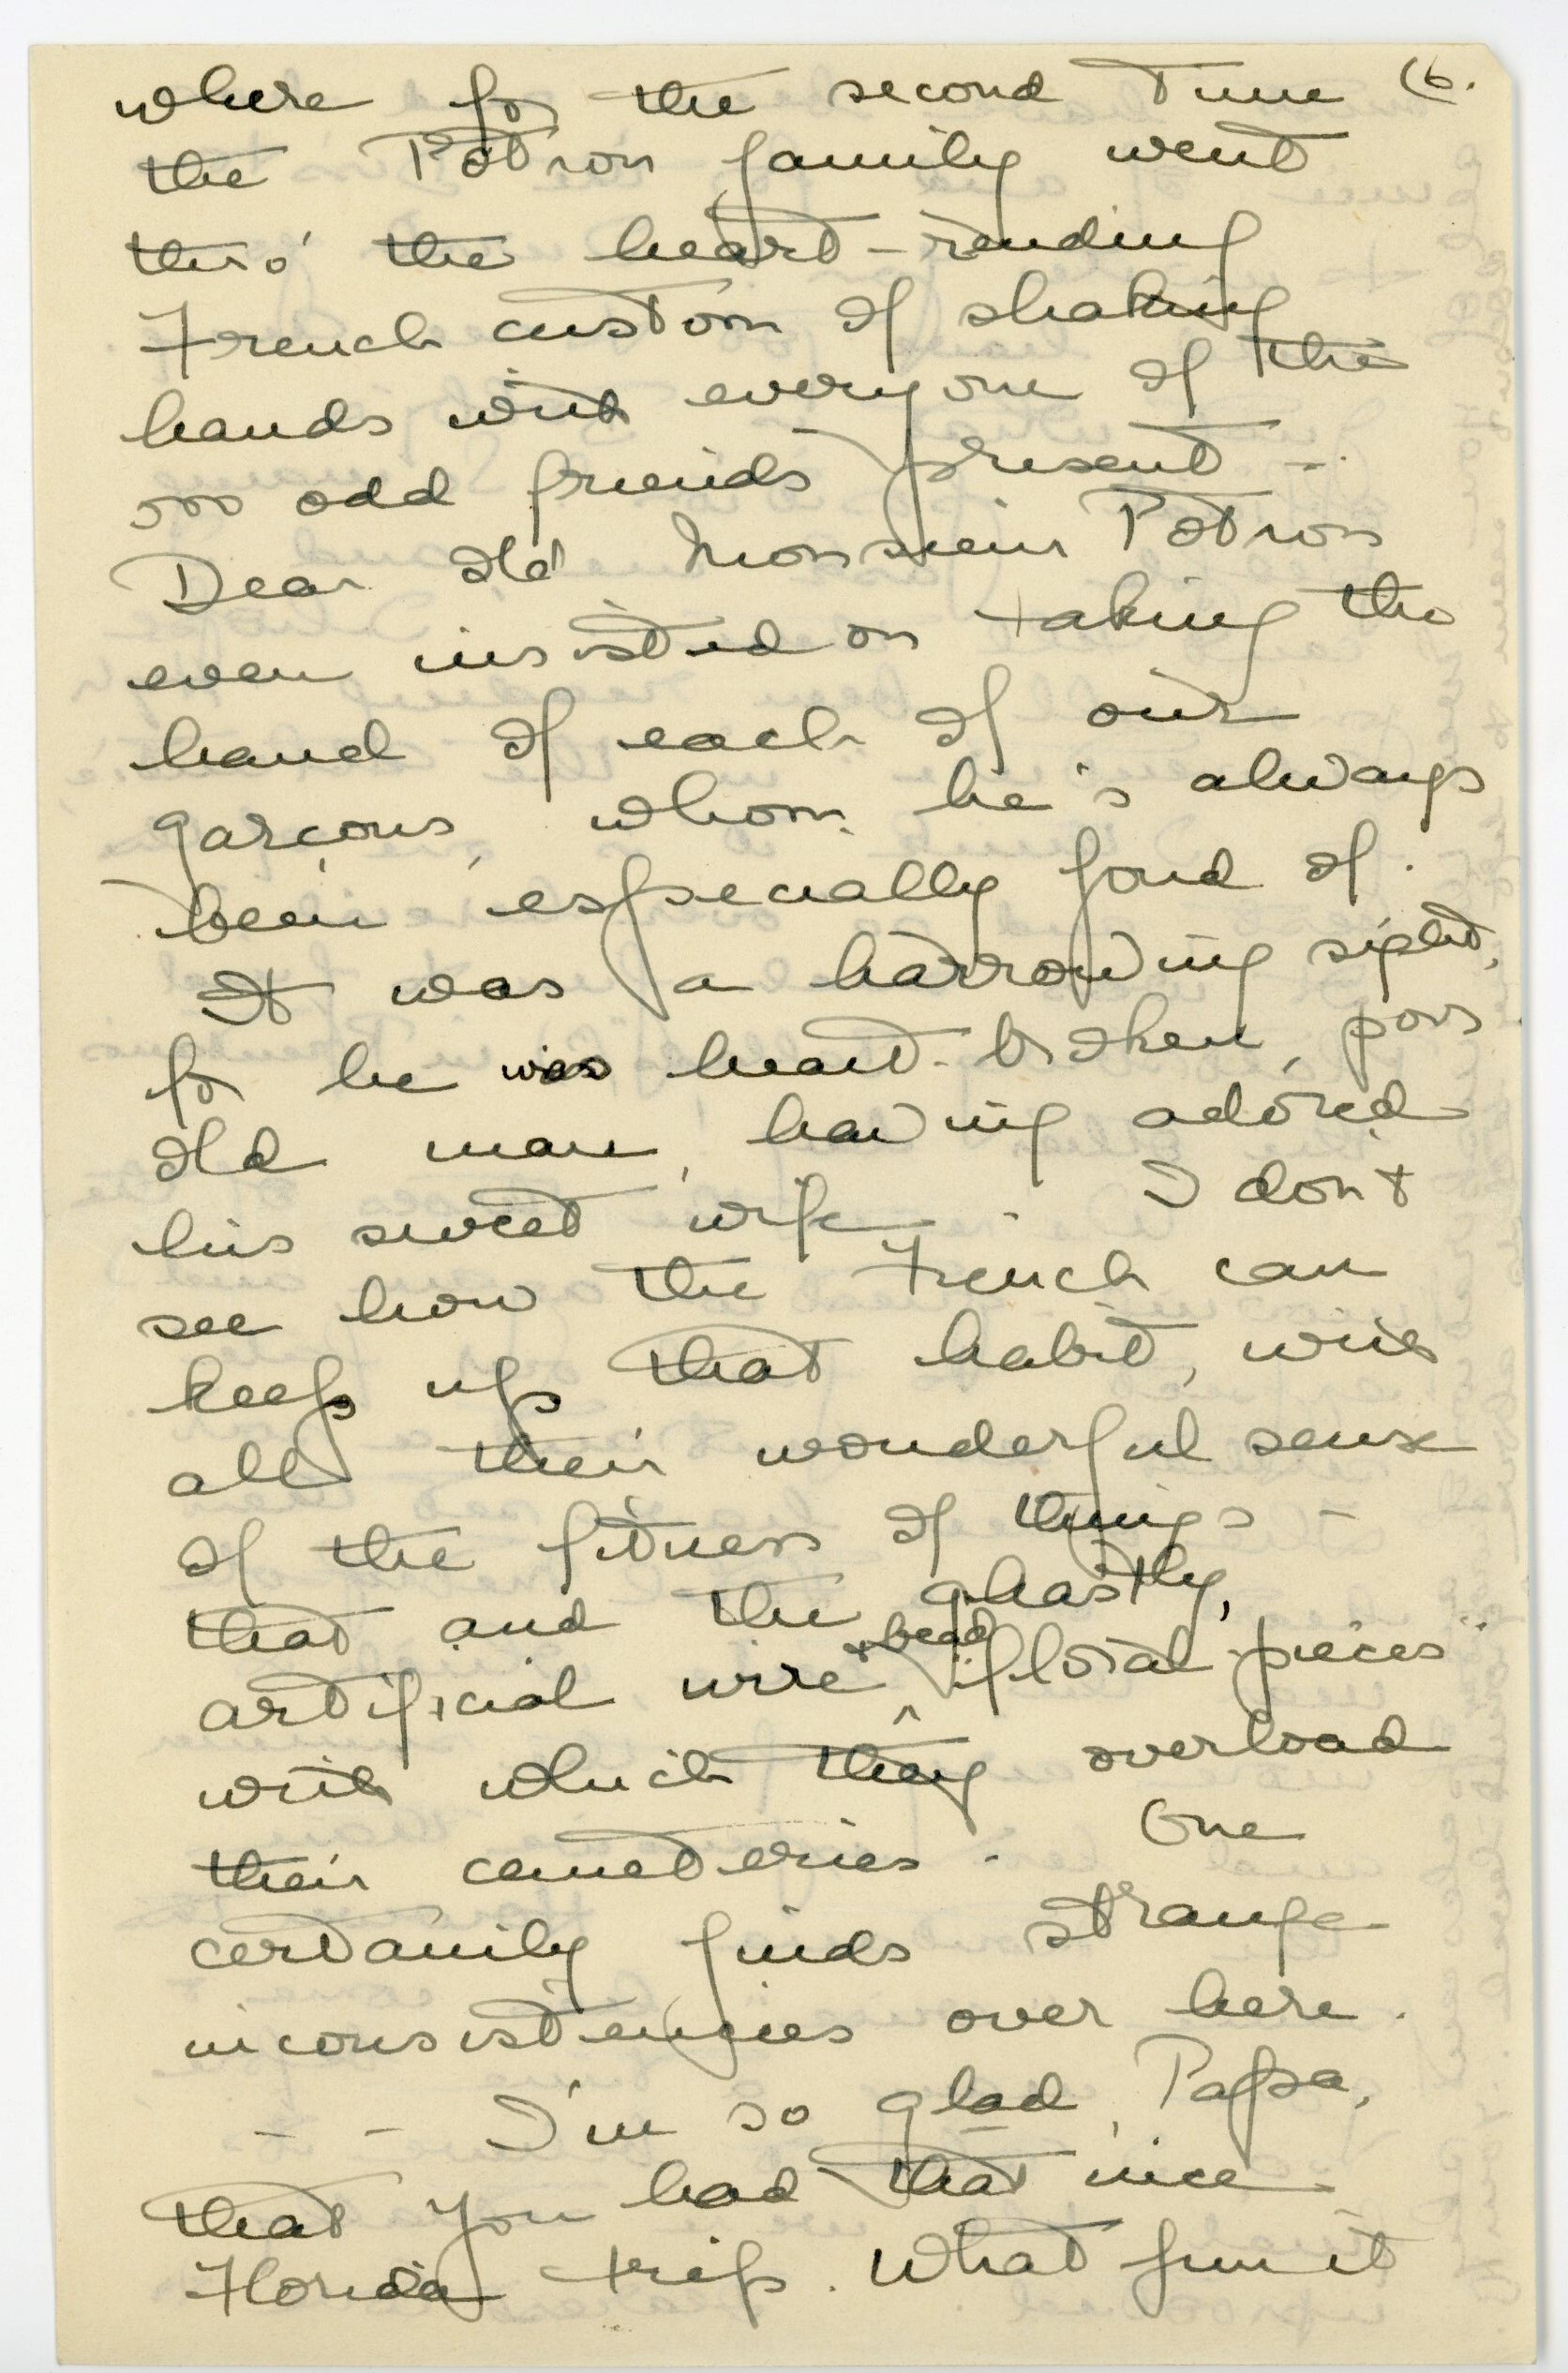 where for the second time (6.
the Potron family went
thro' the heart-rending
French custom of shaking
hands with everyone of the
500 odd friends present -
Dear old Monsieur Potron
even insisted on taking the
hand of each of our
garçons, whom he's always
been especially fond of.
It was a harrowing sight,
for he was heart-broken, poor
old man, having adored
his sweet wife. I don't
see how the French can
keep up that habit, with
all their wonderful sense
of the fitness of things -
that and the ghastly,
artificial wire + bead "floral pieces"
with which they overload
their cemeteries. One
certainly finds strange
inconsistencies over here.
- - I'm so glad, Papa,
that you had that nice
Florida trip. What fun it